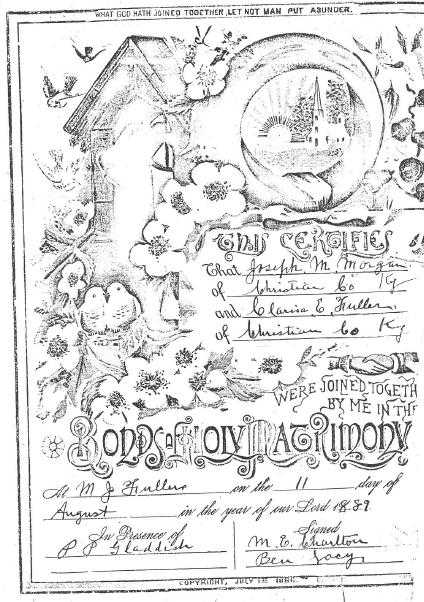 WHAT GOD HATH JOINED TOGETHER LET NOT MAN PUT ASUNDER.
THIS CERTIFIES
That Joseph M. Morgan
of Christian Co Ky
and Clarisa E. Fuller,
of Christian Co Ky
WERE JOINED TOGETH
BY ME IN TH
BONDS OF HOLY MATRIMONY
At M J Fullers on the 11 day of
August in the year of our Lord 1889
In Presence of
P P Gladdish
Signed
M. E. Charlton
Ben
COPYRIGHT, JULY